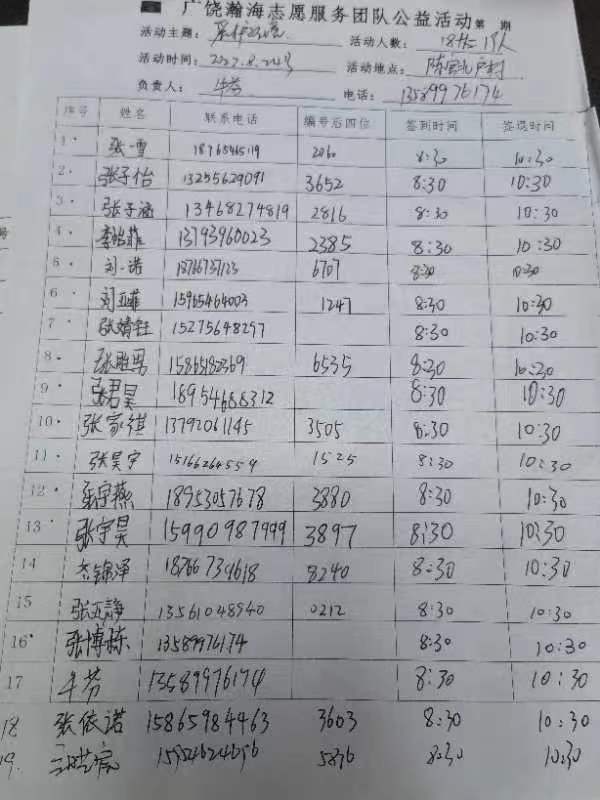 广饶瀚海志愿服务团队公益活动第 期
活动主题: 活动人数: 18
活动时间: 活动地点: 陈官 村
负责人: 牛芳 电话: 13589976174
序号 姓名 联系电话 编号后四位 签到时间 签退时间
1 张雪 2060 8:30 10:30
2 张子怡 13255629091 3652 8:30 10:30
3 张子涵 13468274819 2816 8:30 10:30
4 李皓菲 13793960023 2385 8:30 10:30
5 刘一诺 18766737123 6707 8:30 10:30
6 刘亚菲 15965464003 1247 8:30 10:30
7 张婧钰 15275648297 8:30 10:30
8 张胜男 15865182369 6535 8:30 10:30
9 张君昊 18954688312 8:30 10:30
10 张家祺 13792061145 3505 8:30 10:30
11 张昊宇 15166264559 1525 8:30 10:30
12 张宇燕 18953057678 3880 8:30 10:30
13 张宇昊 15990987999 3897 8:30 10:30
14 锦泽 18766734618 8240 8:30 10:30
15 张 静 13561048940 0212 8:30 10:30
16 张博栋 13589976174 8:30 10:30
17 牛芳 13589976174 8:30 10:30
18 张依诺 15865984463 3603 8:30 10:30
19. 5836 8:30 10:30